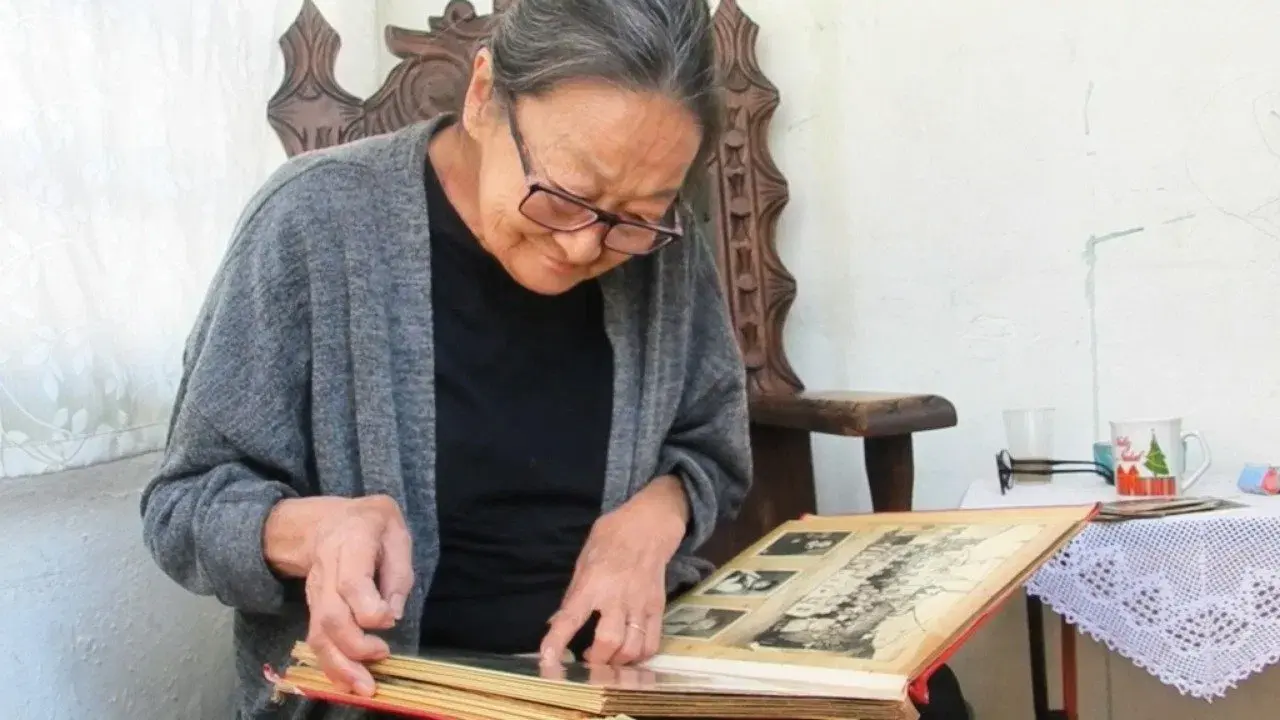 Feliz
Navidad